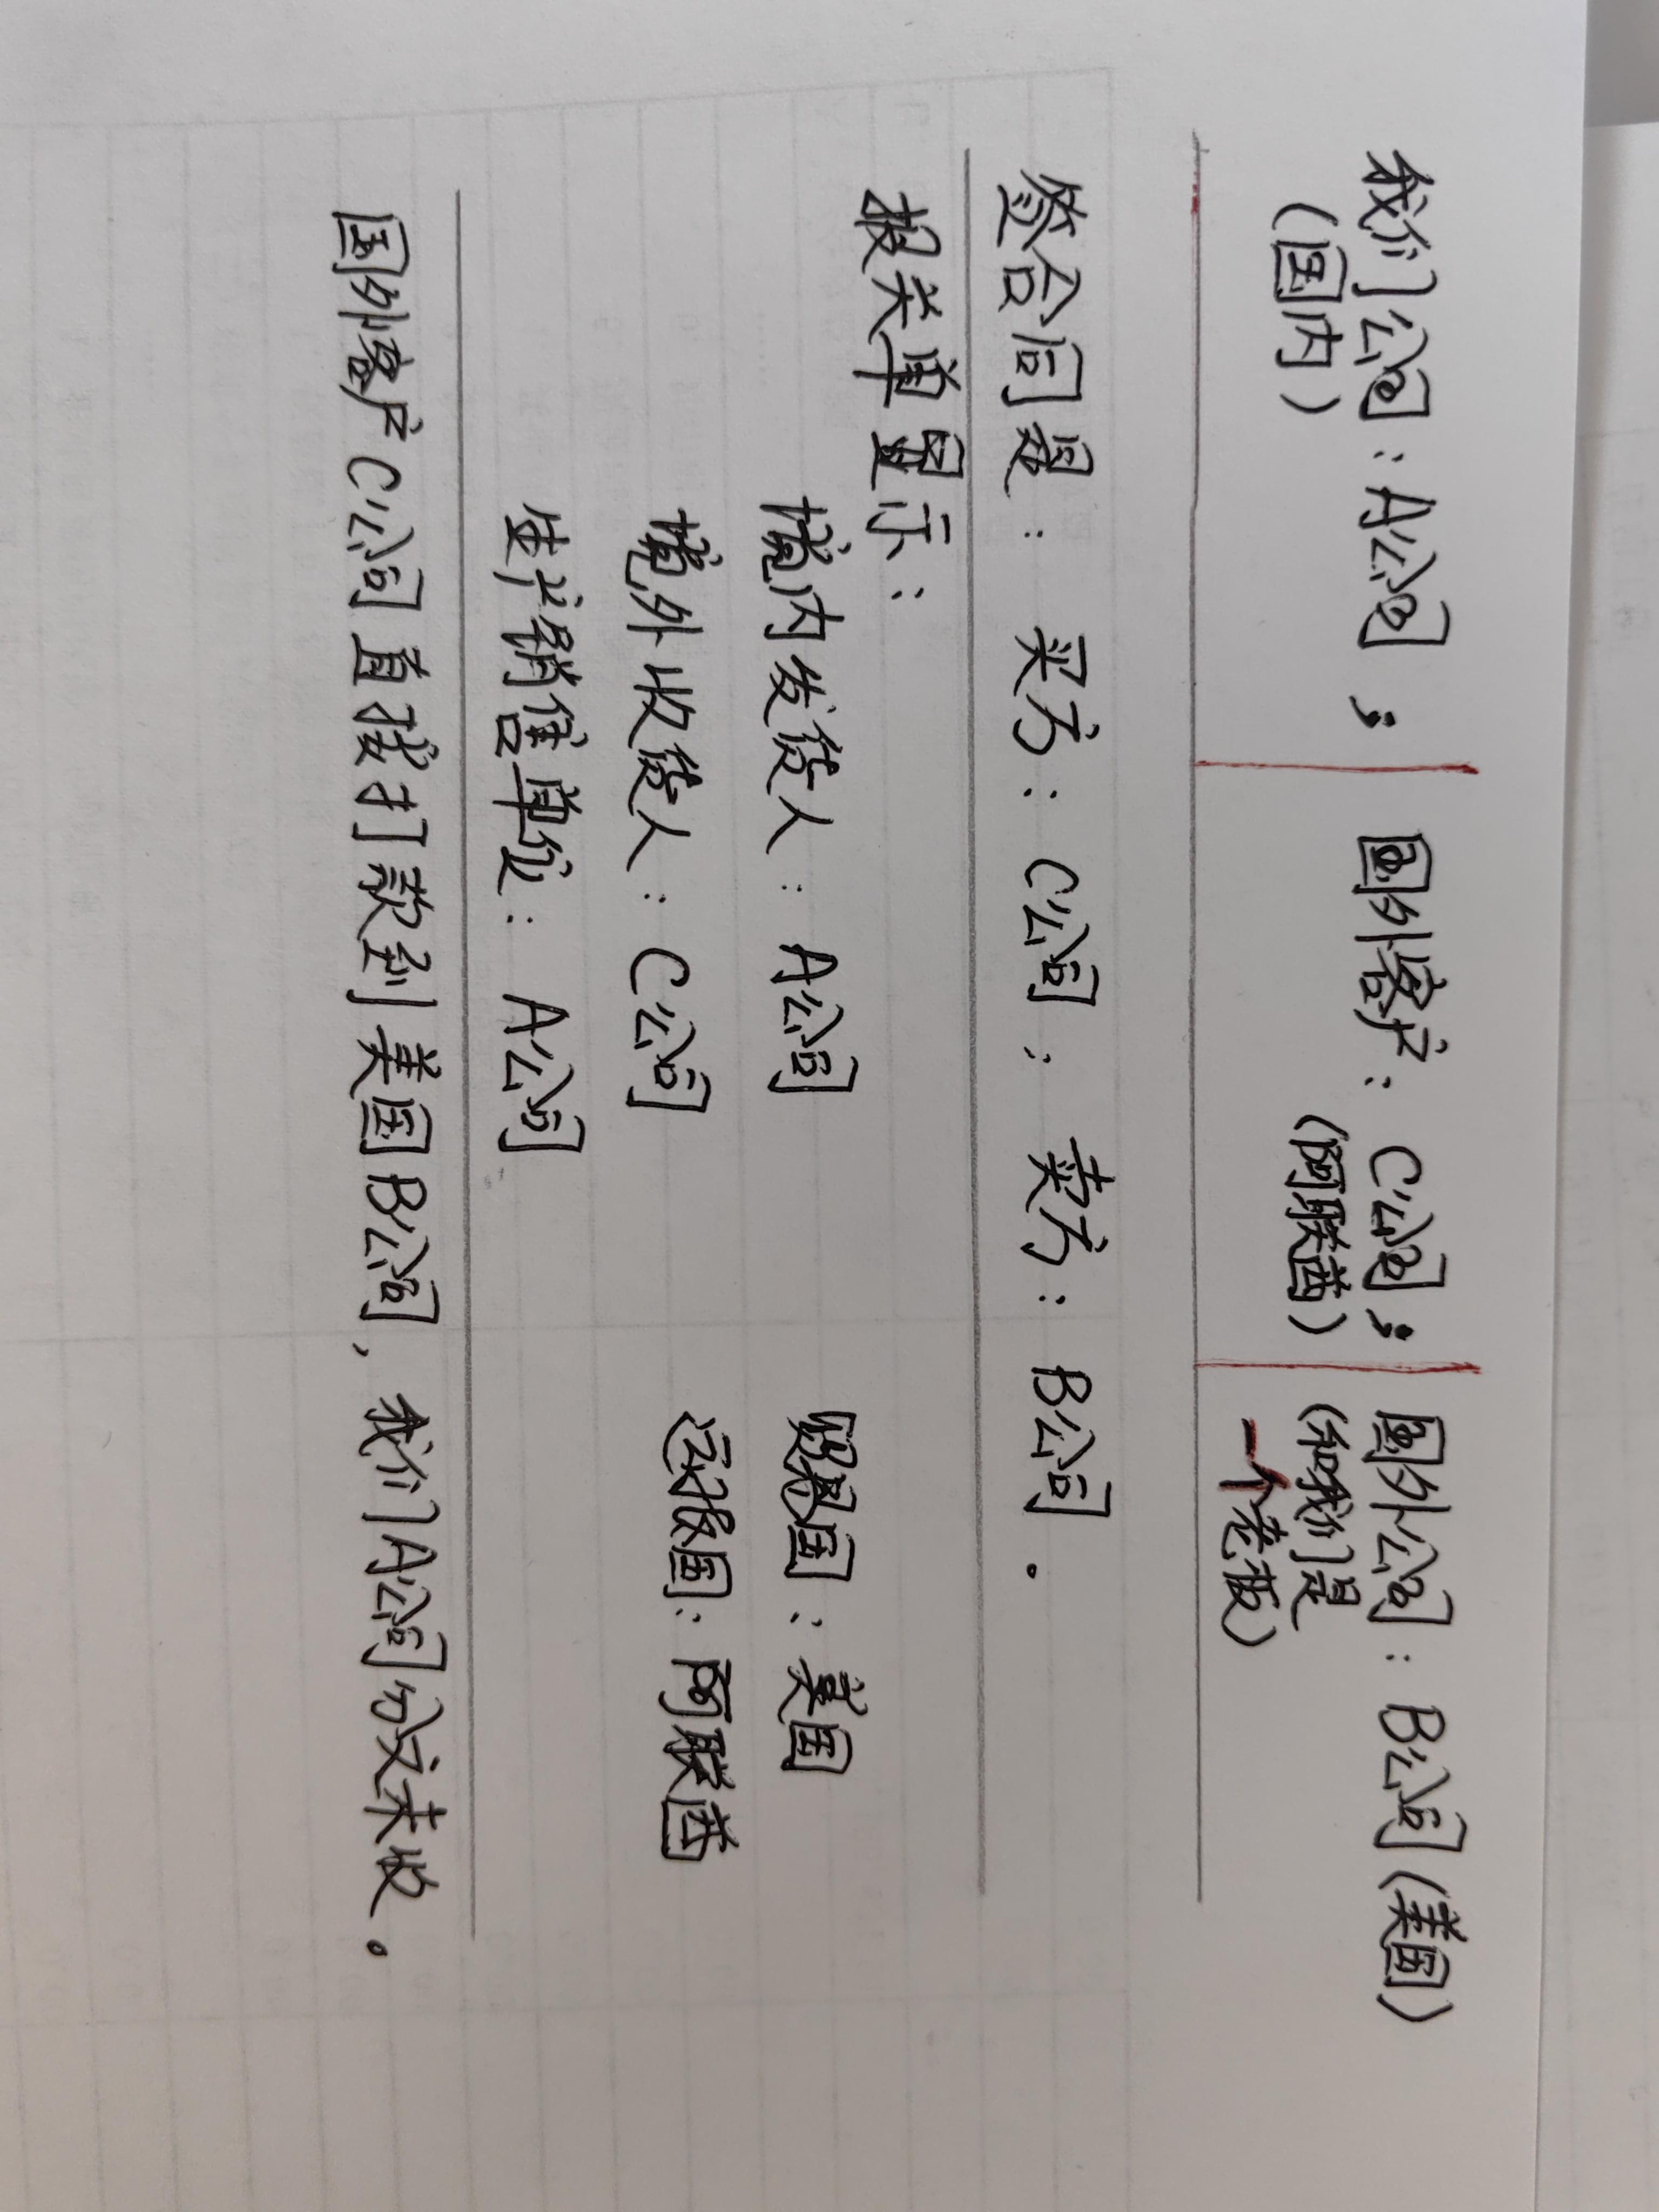 我们公司：A公司； 国外客户：C公司； 国外公司：B公司（美国）
（国内） （阿联酋） （和我们是
一个老板）
签合同是： 买方：C公司； 卖方：B公司。
报关单显示：
境内发货人：A公司 贸易国：美国
境外收货人：C公司 运抵国：阿联酋
生产销售单位：A公司
国外客户C公司直接打款到美国B公司，我们A公司分文未收。